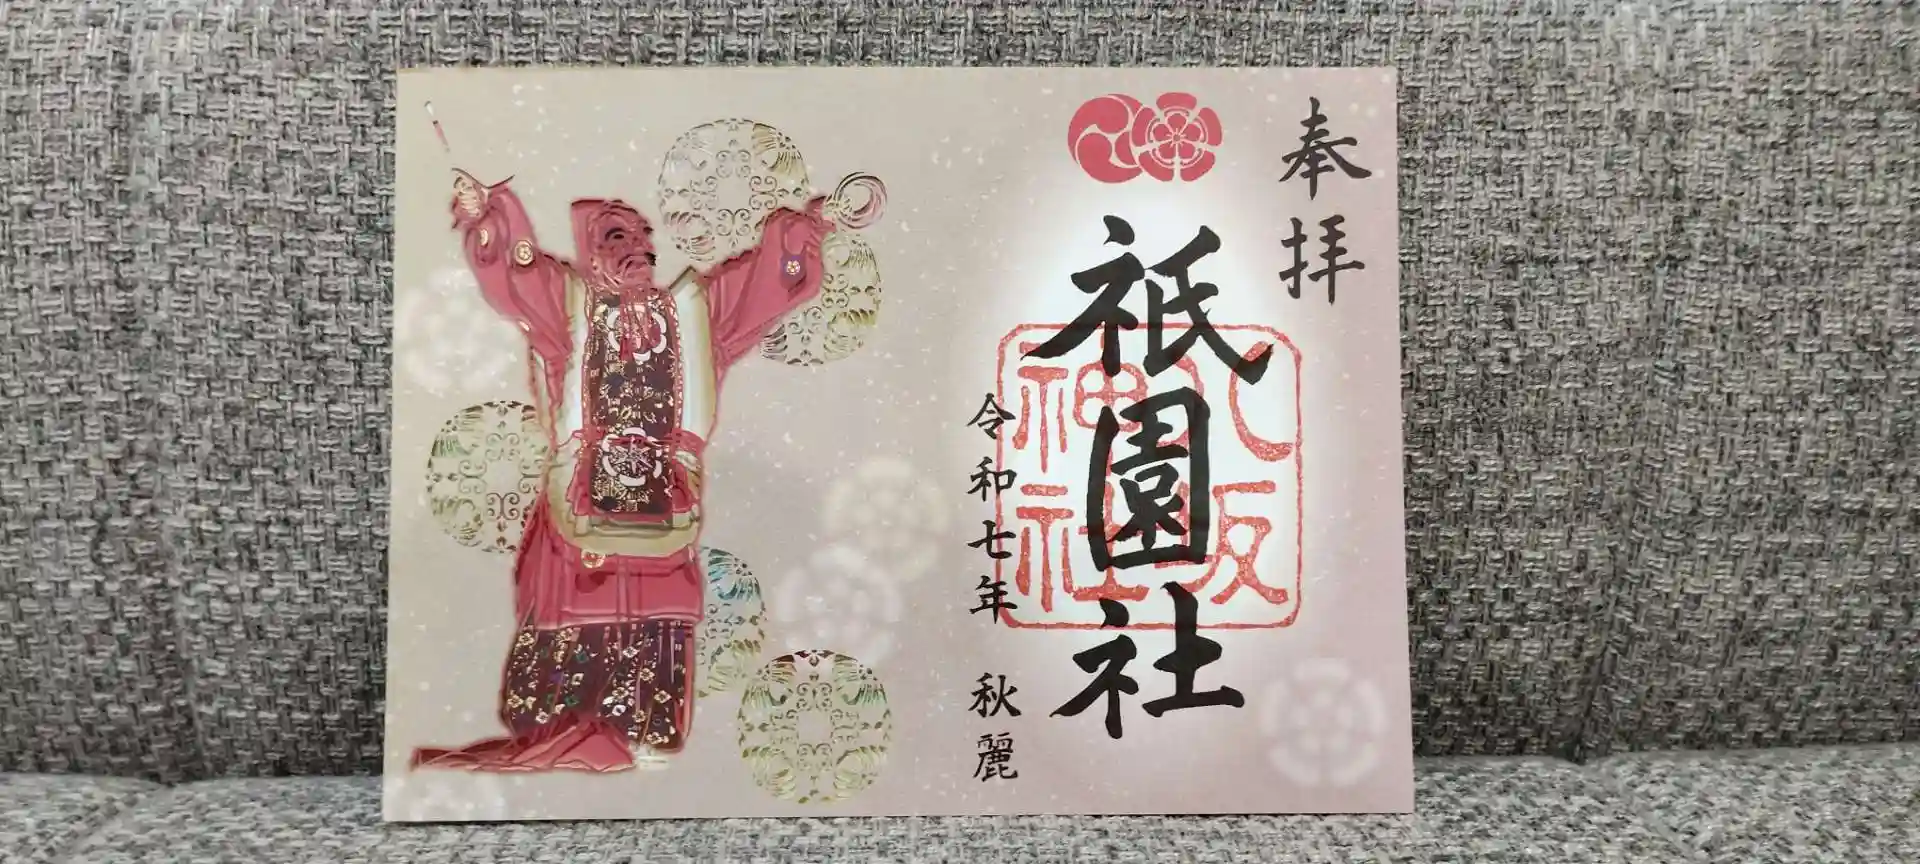 奉拝
祇園社
八坂
神社
令和七年 秋麗